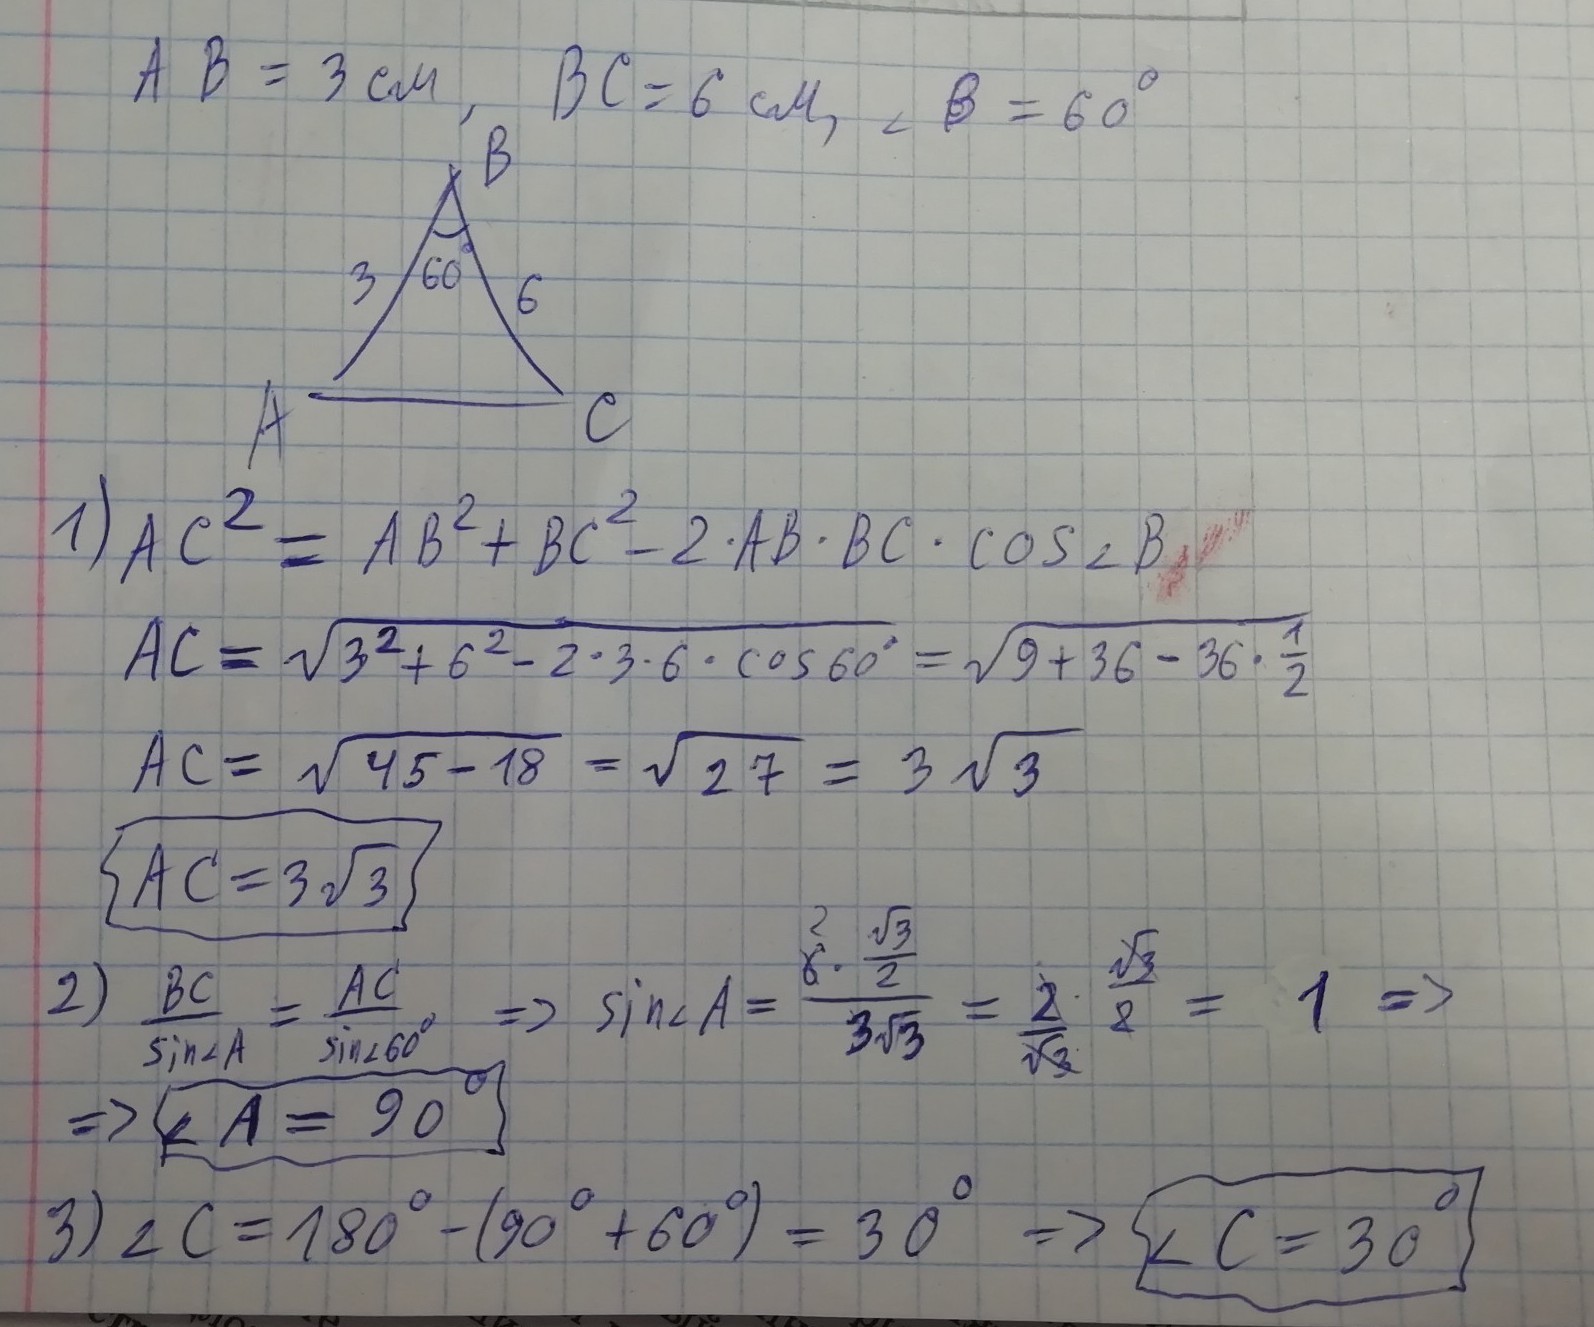 AB = 3 см, BC = 6 см, ∠B = 60°
B
3 60° 6
A C
1) AC² = AB² + BC² - 2·AB·BC·cos∠B
AC = √(3² + 6² - 2·3·6·cos60°) = √(9 + 36 - 36·1/2)
AC = √(45 - 18) = √27 = 3√3
AC = 3√3
2) BC/sin∠A = AC/sin∠60° => sin∠A = (6·√3/2)/(3√3) = 2/√3 · √3/2 = 1 =>
=> ∠A = 90°
3) ∠C = 180° - (90° + 60°) = 30° => ∠C = 30°